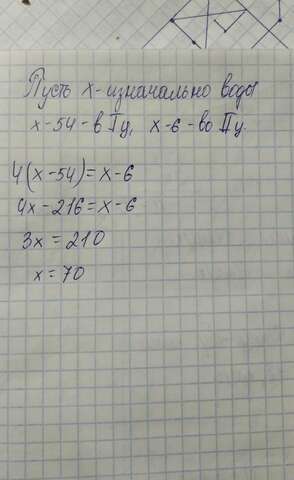 Пусть x-изначально воды
x-54-в Iц, x-6-во IIц.
4(x-54)=x-6
4x-216=x-6
3x=210
x=70